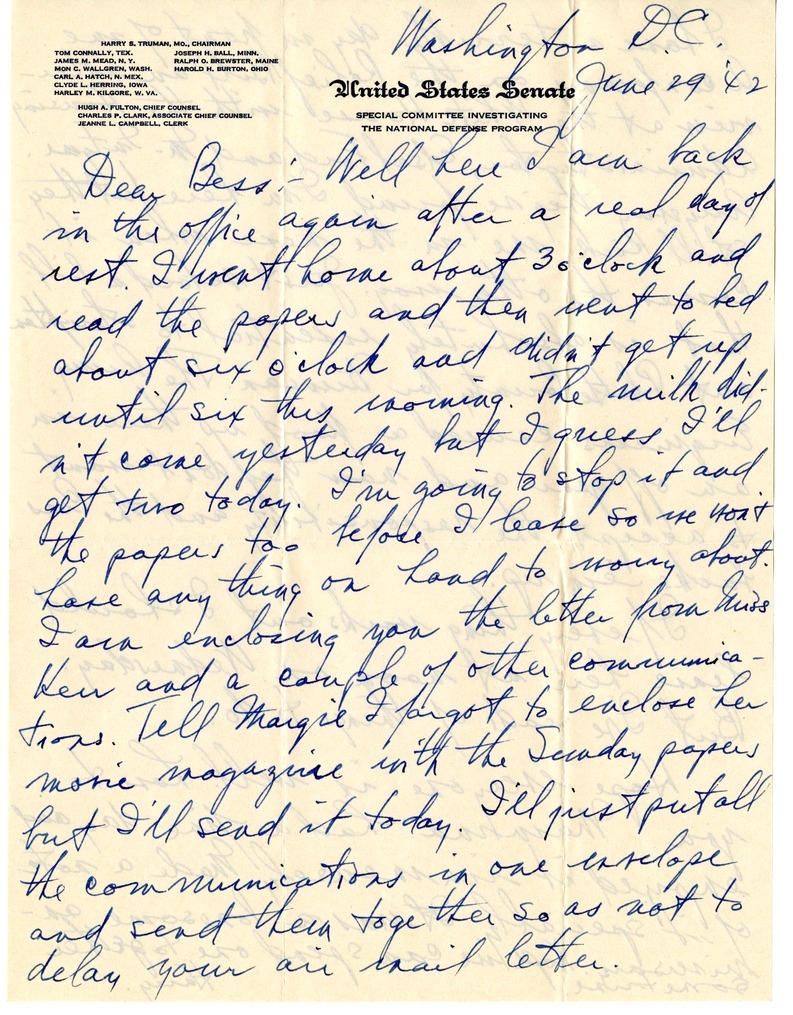 HARRY S. TRUMAN, MO., CHAIRMAN
TOM CONNALLY, TEX.
JAMES M. MEAD, N. Y.
MON C. WALLGREN, WASH.
CARL A. HATCH, N. MEX.
CLYDE L. HERRING, IOWA
HARLEY M. KILGORE, W. VA.
JOSEPH H. BALL, MINN.
RALPH O. BREWSTER, MAINE
HAROLD H. BURTON, OHIO
HUGH A. FULTON, CHIEF COUNSEL
CHARLES P. CLARK, ASSOCIATE CHIEF COUNSEL
JEANNE L. CAMPBELL, CLERK
Washington D.C.
United States Senate
June 29 '42
SPECIAL COMMITTEE INVESTIGATING
THE NATIONAL DEFENSE PROGRAM
Dear Bess:- Well here I am back
in the office again after a real day of
rest. I went home about 3 o'clock and
read the papers and then went to bed
about six o'clock and didn't get up
until six this morning. The milk did-
n't come yesterday but I guess I'll
get two today. I'm going to stop it and
the papers too before I leave so we won't
have any thing on hand to worry about.
I am enclosing you the letter from Miss
Kerr and a couple of other communica-
tions. Tell Margie I forgot to enclose her
movie magazine with the Sunday papers
but I'll send it today. I'll just put all
the communications in one envelope
and send them together so as not to
delay your air mail letter.